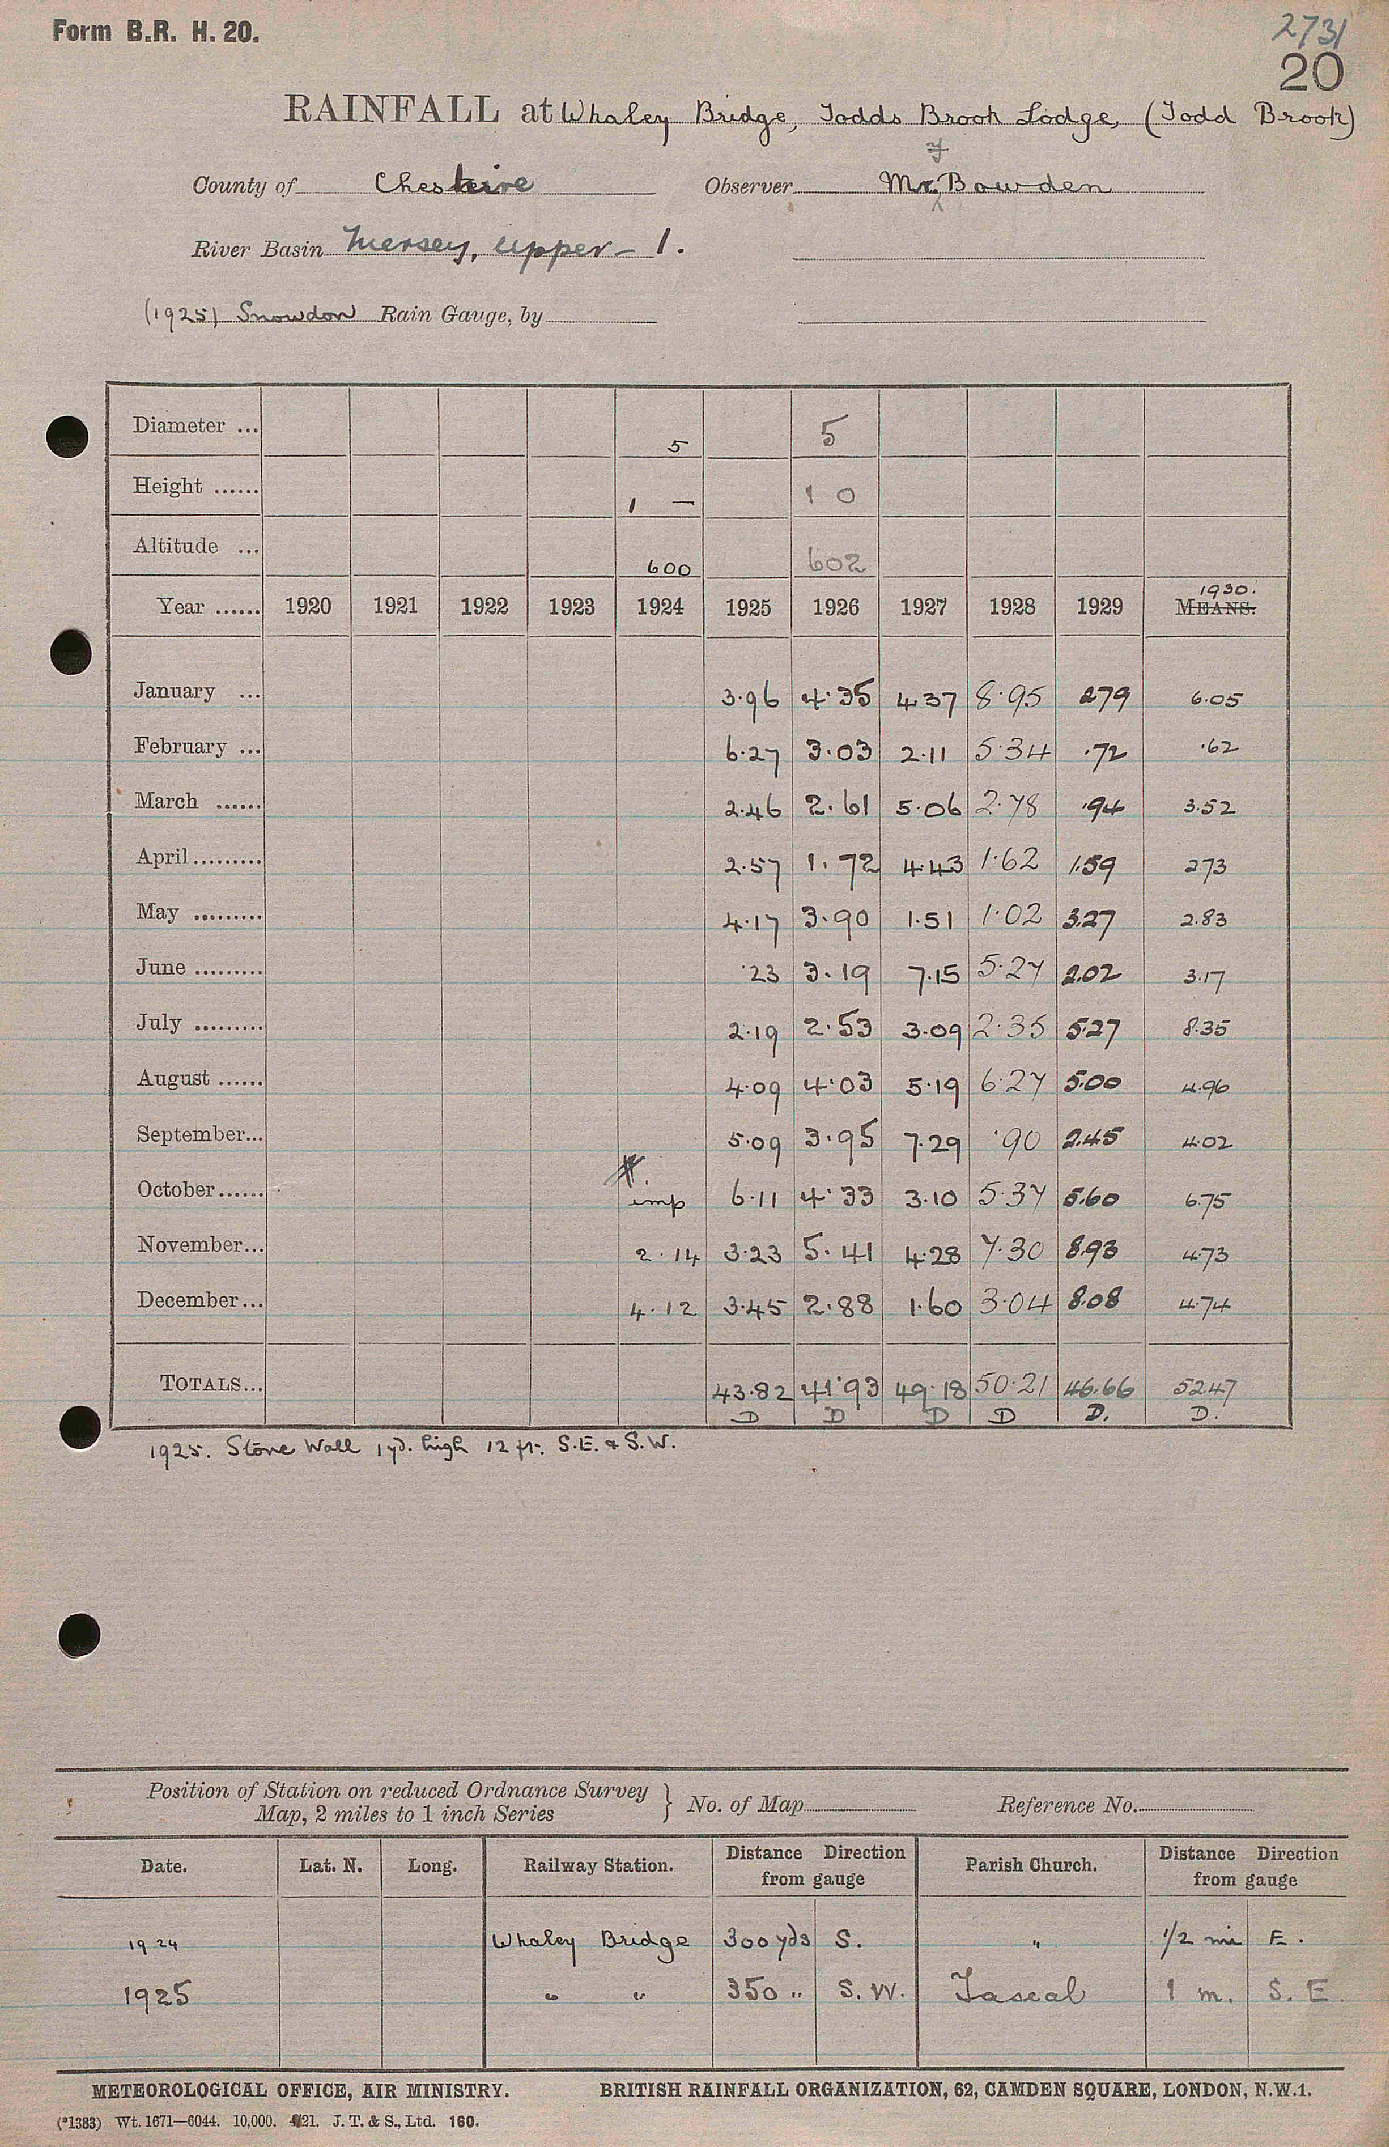 Form B.R. H. 20.
2731
20
RAINFALL at Whaley Bridge, Todds Brook Lodge, (Todd Brook)
County of Cheshire Observer Mr. J Bowden
River Basin Mersey, Upper - 1.
(1925) Snowdon Rain Gauge, by
Diameter ... 5 5
Height ...... 1 — 1 0
Altitude ... 600 602
1930.
Year ...... 1920 1921 1922 1923 1924 1925 1926 1927 1928 1929 MEANS.
January ... 3.96 4.35 4.37 8.95 2.79 6.05
February ... 6.27 3.03 2.11 5.34 .72 .62
March ...... 2.46 2.61 5.06 2.78 .94 3.52
April ......... 2.57 1.72 4.43 1.62 1.59 2.73
May ......... 4.17 3.90 1.51 1.02 3.27 2.83
June ......... .23 3.19 7.15 5.27 2.02 3.17
July ......... 2.19 2.53 3.09 2.35 5.27 8.35
August ...... 4.09 4.03 5.19 6.27 5.00 4.96
September... 5.09 3.95 7.29 .90 2.45 4.02
October...... imp 6.11 4.33 3.10 5.37 5.60 6.75
November... 2.14 3.23 5.41 4.28 7.30 8.93 4.73
December... 4.12 3.45 2.88 1.60 3.04 8.08 4.74
TOTALS... 43.82 41.93 49.18 50.21 46.66 52.47
D D D D D. D.
1925. Stone Wall 1 yd. high 12 ft. S.E. & S.W.
Position of Station on reduced Ordnance Survey
Map, 2 miles to 1 inch Series } No. of Map Reference No.
Date. Lat. N. Long. Railway Station. Distance Direction from gauge Parish Church. Distance Direction from gauge
1924 Whaley Bridge 300 yds S. " 1/2 mi E.
1925 " " 350 " S.W. Taxal 1 m. S.E.
METEOROLOGICAL OFFICE, AIR MINISTRY. BRITISH RAINFALL ORGANIZATION, 62, CAMDEN SQUARE, LONDON, N.W.1.
(*1383) Wt. 1671—6044. 10,000. 4/21. J. T. & S., Ltd. 160.